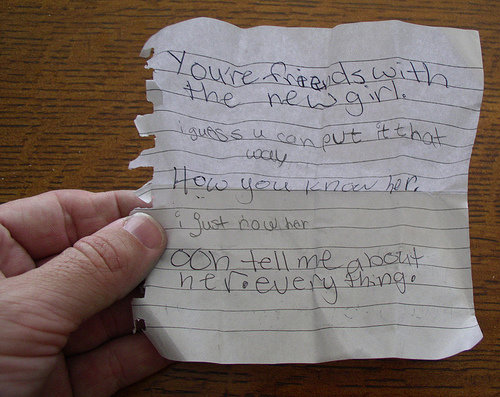 You're friends with
the new girl.
i guess u can put it that
way
How you know her.
i just now her
OOh tell me about
her. every thing.